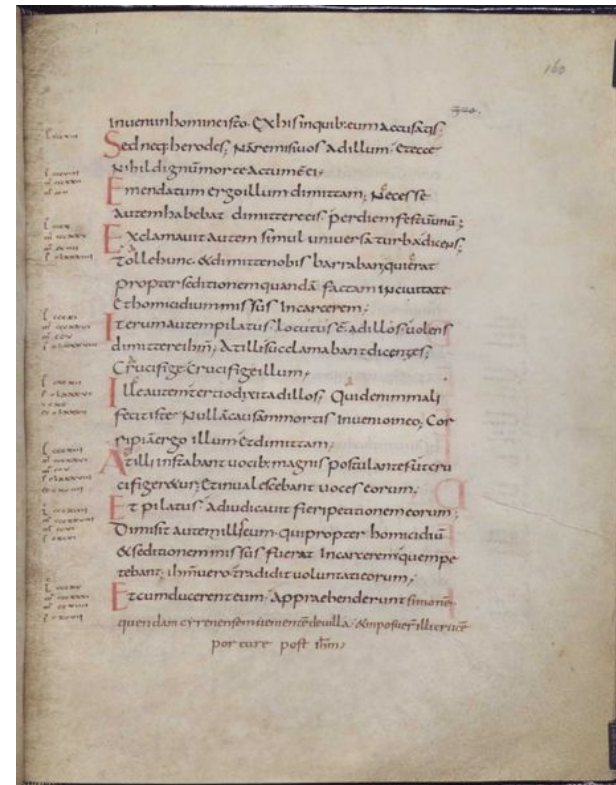 160
320.
invenio inhomineisto. Exhisinquib: eumaccusatis;
Sedneq: herodes; Nãremisivos adillum. Etecce
Nihil dignũmorteactumẽei;
Emendatum ergoillum dimittam; Necesse
autemhabebat dimittereeis perdiemfestũunũ;
Exclamavitautem simul universaturbadicens;
Tollehunc. &dimittenobis barrabanquierat
propterseditionemquandã factamincivitate
Ethomicidiummissus Incarcerem;
Iterumautempilatus locutus ẽ adillos volens
dimittereihm̃; Atillisucclamabantdicentes;
Crucifige Crucifigeillum;
Illeautemterciodixitadillos; Quidenimmali
fecitiste Nullãcausammortis invenioineo; Cor
ripiãergo illum Etdimittam;
Atilli instabant vocib: magnis postulantesutcru
cifiger&ur; Etinvalescebant voces eorum;
Et pilatus adiudicavit fieripetitionemeorum;
Dimisit autemilliseum. quipropter homicidiũ
&seditionemmissus fuerat Incarceremquempe
tebant; ihm̃vero tradidit voluntatieorum;
Etcumducerenteum. Appraehenderuntsimonẽ
quendam cyrenensemvenientẽdevilla. &imposuer̃illicrucẽ
portare post ihm̃;